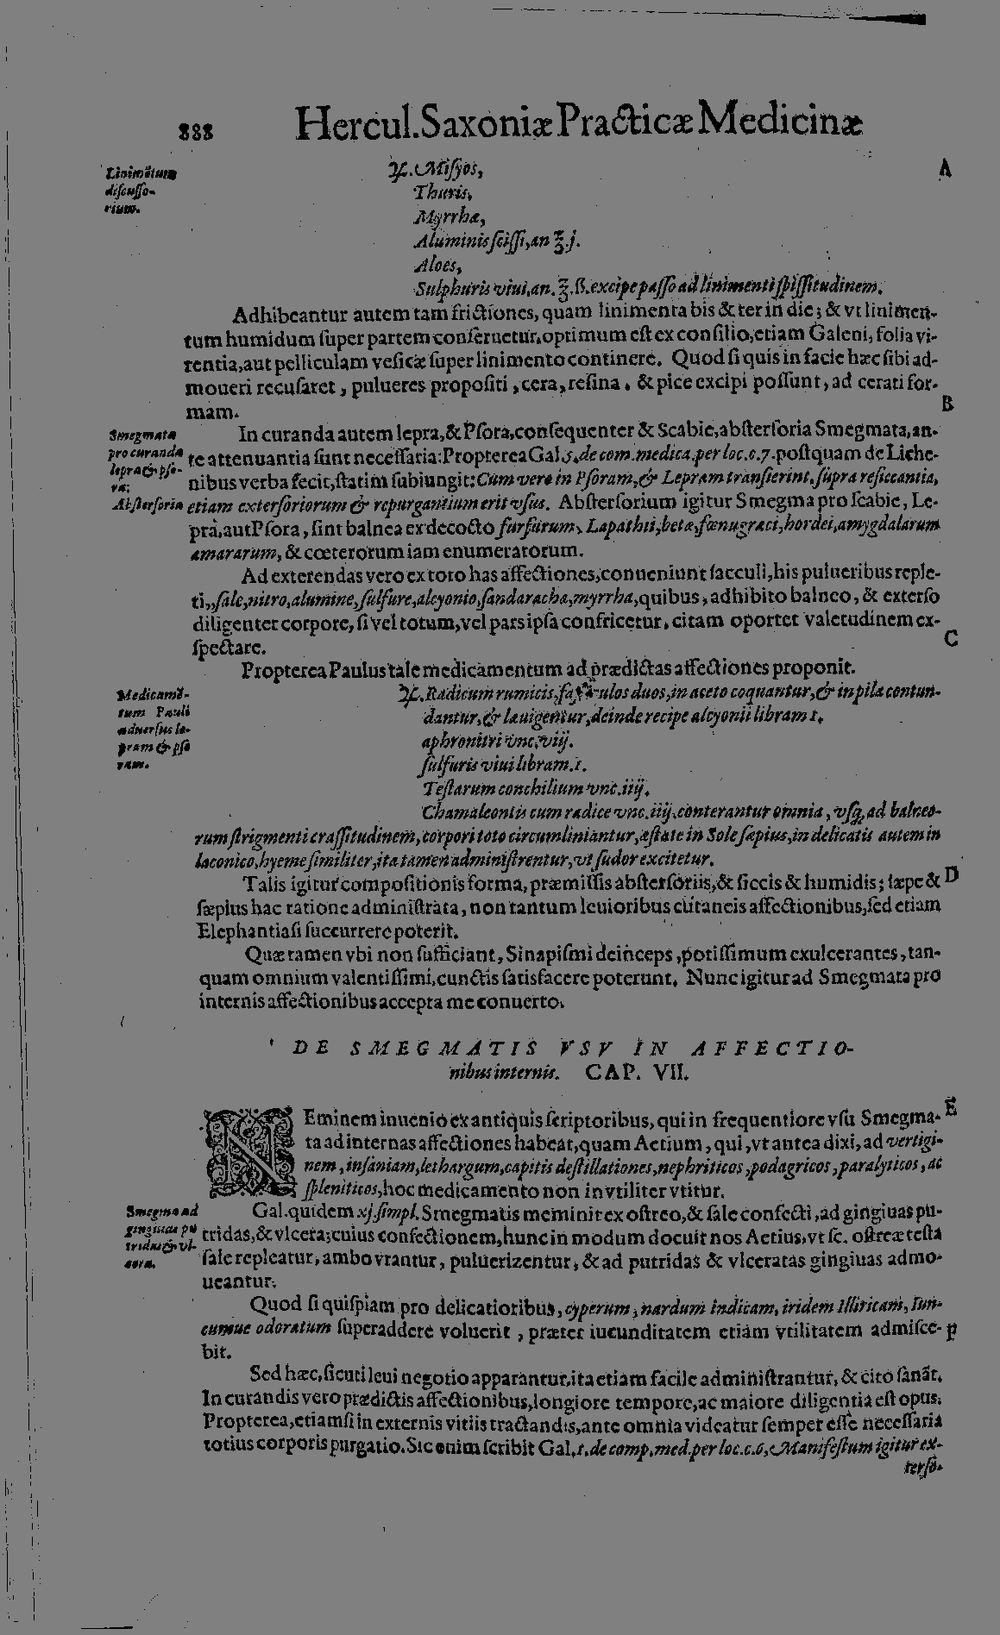 888 Hercul. Saxoniæ Practicæ Medicinæ
Linimētum
discusso-
rium.
A
℞. Misyos,
Thuris,
Myrrhæ,
Aluminis ſciſſi, an ʒ. j.
Aloes,
Sulphuris viui, an. ʒ. ß. excipe paſſo ad linimenti ſpiſſitudinem.
Adhibeantur autem tam frictiones, quam linimenta bis & ter in die; & vt linimen-
tum humidum ſuper partem conſeruetur, optimum eſt ex conſilio, etiam Galeni, folia vi-
rentia, aut pelliculam veſicæ ſuper linimento continere. Quod ſi quis in facie hæc ſibi ad-
moueri recuſaret, pulueres propoſiti, cera, reſina, & pice excipi poſſunt, ad cerati for-
mam.
B
Smegmata
pro curanda
lepra & pſo-
ra;
Abſterſoria
In curanda autem lepra, & Pſora, conſequenter & Scabie, abſterſoria Smegmata, an-
te attenuantia ſunt neceſſaria: Propterea Gal. 5. de com. medica. per loc. c. 7. poſtquam de Liche-
nibus verba fecit, ſtatim ſubiungit: Cum vero in Pſoram, & Lepram tranſierint, ſupra reſiccantia,
etiam exterſoriorum & repurgantium erit vſus. Abſterſorium igitur Smegma pro ſcabie, Le-
pra, aut Pſora, ſint balnea ex decocto furfurum, Lapathii, betæ, fœnugræci, hordei, amygdalarum
amararum, & cœterorum iam enumeratorum.
Ad exterendas vero ex toto has affectiones, conueniunt ſacculi, his pulueribus reple-
ti,, ſale, nitro, alumine, ſulfure, alcyonio, ſandaracha, myrrha, quibus, adhibito balneo, & exterſo
diligenter corpore, ſi vel totum, vel pars ipſa confricetur, citam oportet valetudinem ex-
ſpectare.
C
Propterea Paulus tale medicamentum ad prædictas affectiones proponit.
Medicamē-
tum Pauli
aduerſus le-
pram & pſo
ram.
℞. Radicum rumicis, duos, in aceto coquantur, & in pila contun-
dantur, & lauigentur, deinde recipe alcyonii libram 1.
aphronitri vnc. viij.
ſulfuris viui libram. 1.
Teſtarum conchilium vnc. iiij.
Chamaleontis cum radice vnc. iiij. conterantur omnia, vſq, ad balneo-
rum ſtrigmenti craſſitudinem, corpori toto circumliniantur, æſtate in Sole ſæpius, in delicatis autem in
laconico, hyeme ſimiliter, ita tamen adminiſtrentur, vt ſudor excitetur.
Talis igitur compoſitionis forma, præmiſſis abſterſoriis, & ſiccis & humidis; ſæpe &
D
ſæpius hac ratione adminiſtrata, non tantum leuioribus cutaneis affectionibus, ſed etiam
Elephantiaſi ſuccurrere poterit.
Quæ tamen vbi non ſufficiant, Sinapiſmi deinceps, potiſſimum exulcerantes, tan-
quam omnium valentiſſimi, cunctis ſatisfacere poterunt. Nunc igitur ad Smegmata pro
internis affectionibus accepta me conuerto.
DE SMEGMATIS VSV IN AFFECTIO-
nibus internis. CAP. VII.
E
NEminem inuenio ex antiquis ſcriptoribus, qui in frequentiore vſu Smegma-
ta ad internas affectiones habeat, quam Aetium, qui, vt antea dixi, ad vertigi-
nem, inſaniam, lethargum, capitis deſtillationes, nephriticos, podagricos, paralyticos, ac
ſpleniticos, hoc medicamento non inutiliter vtitur.
Smegma ad
gingiuas pu
tridas & vl-
cera.
Gal. quidem xj. ſimpl. Smegmatis meminit ex oſtreo, & ſale confecti, ad gingiuas pu-
tridas, & vlcera; cuius confectionem, hunc in modum docuit nos Aetius, vt ſc. oſtreæ teſta
ſale repleatur, ambo vrantur, puluerizentur, & ad putridas & vlceratas gingiuas admo-
ueantur.
Quod ſi quiſpiam pro delicatioribus, cyperum, nardum indicam, iridem Illiricam, Iun-
cumue odoratum ſuperaddere voluerit, præter iucunditatem etiam vtilitatem admiſce-
bit.
F
Sed hæc, ſicuti leui negotio apparantur, ita etiam facile adminiſtrantur, & cito ſanāt.
In curandis vero prædictis affectionibus, longiore tempore, ac maiore diligentia eſt opus.
Propterea, etiamſi in externis vitiis tractandis, ante omnia videatur ſemper eſſe neceſſaria
totius corporis purgatio. Sic enim ſcribit Gal. 1. de comp. med. per loc. c. 6, Manifeſtum igitur ex-
terſo-